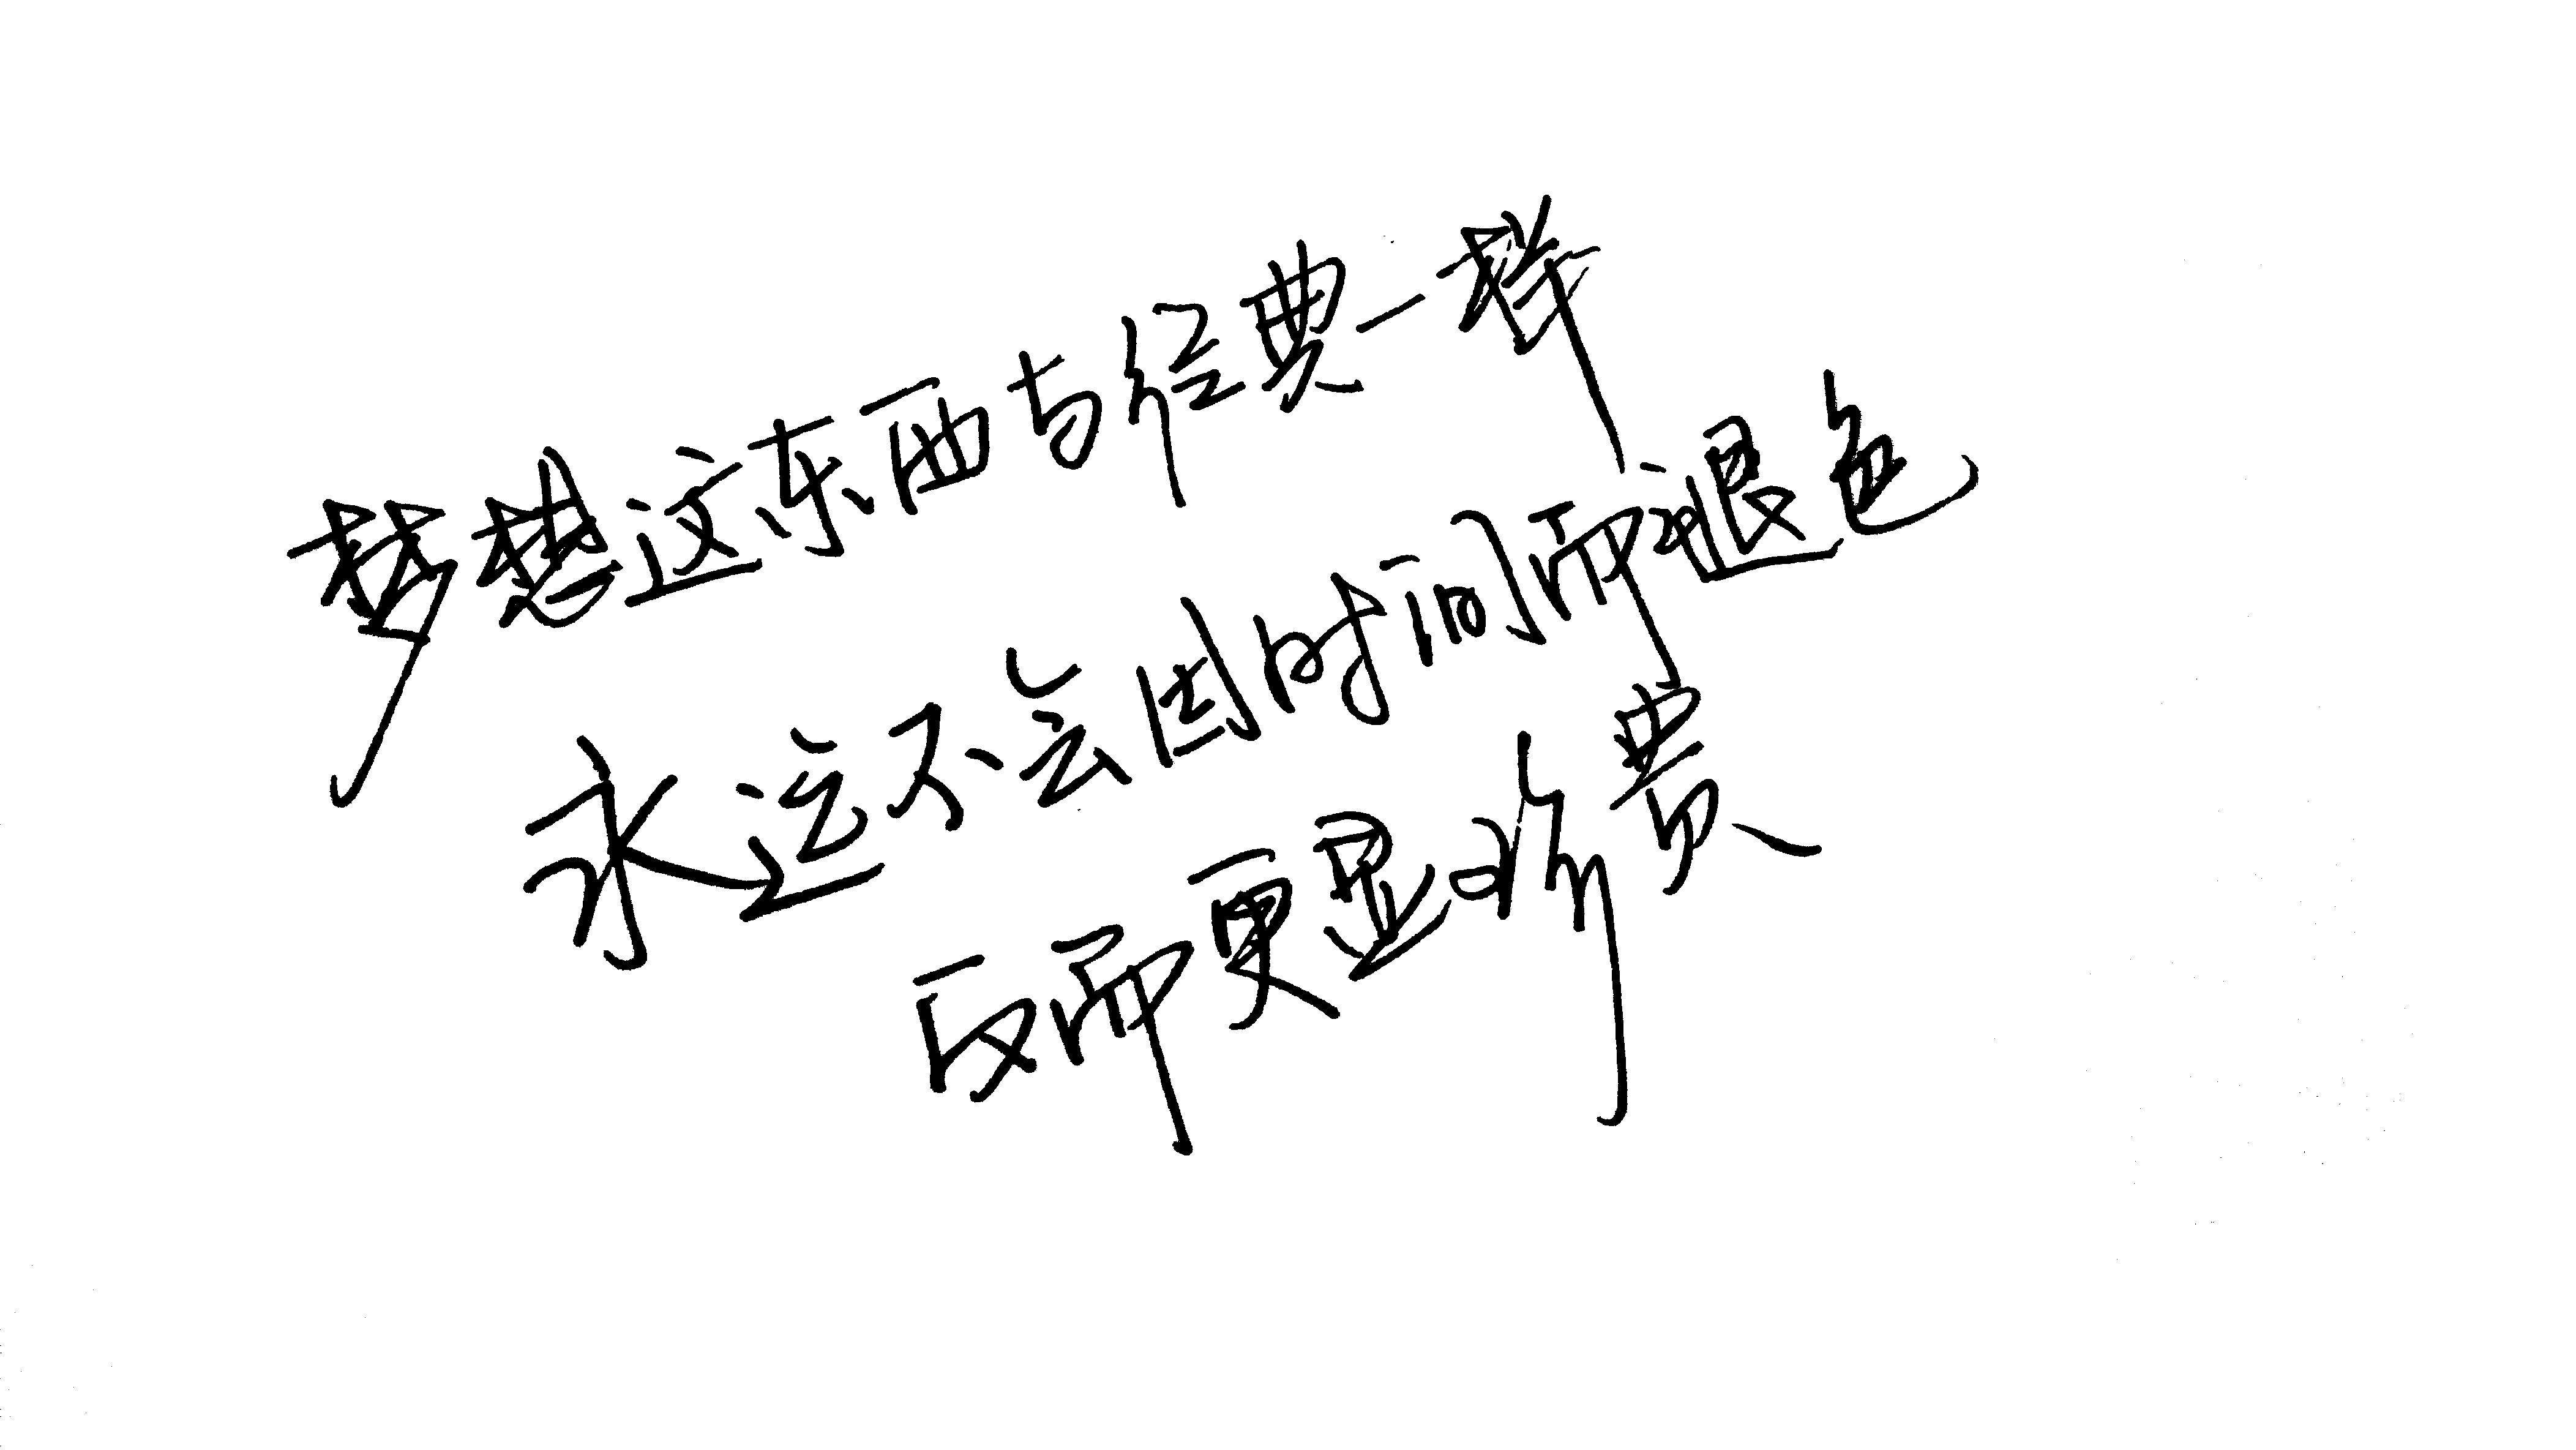 梦想这东西与经典一样
永远不会因时间而褪色
反而更显珍贵